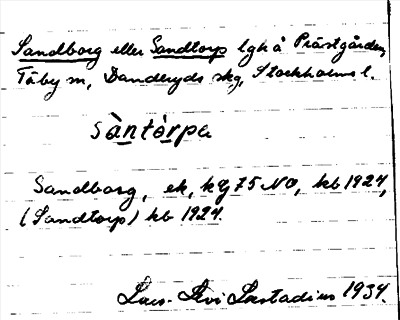 Sandborg eller Sandtorp lgh å Prästgården,
Täby sn, Danderyds skg, Stockholms l.
sàntòrpa
Sandborg, ek, kbl 75 NO, kb 1924,
(Sandtorp) kb 1924.
Lars-Levi Læstadius 1934.